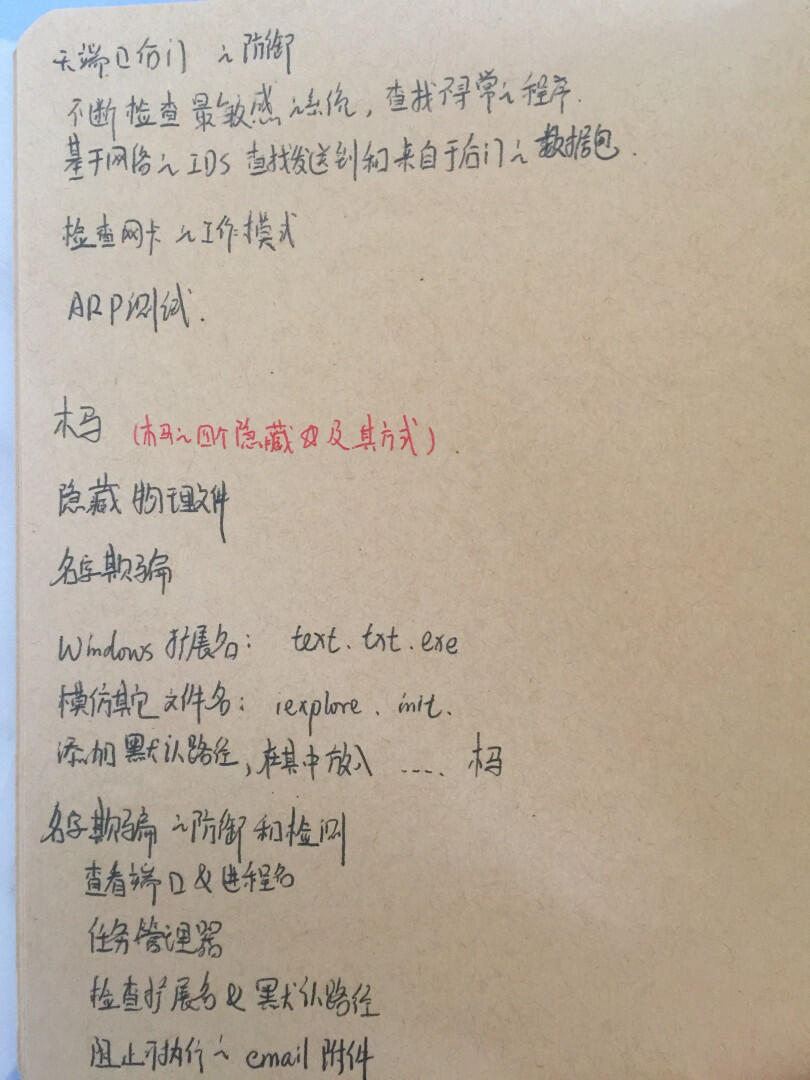 无端口后门之防御
不断检查最敏感之系统，查找异常之程序.
基于网络之IDS 查找发送到和来自于后门之数据包.
检查网卡之工作模式
ARP测试.
木马 (木马之四个隐藏 及其方式).
隐藏物理文件
名字欺骗
Windows 扩展名: text.txt.exe
模仿其它文件名: iexplore. init.
添加默认路径,在其中放入 .... 木马
名字欺骗之防御和检测
查看端口&进程名
任务管理器
检查扩展名&默认路径
阻止可执行之 email 附件